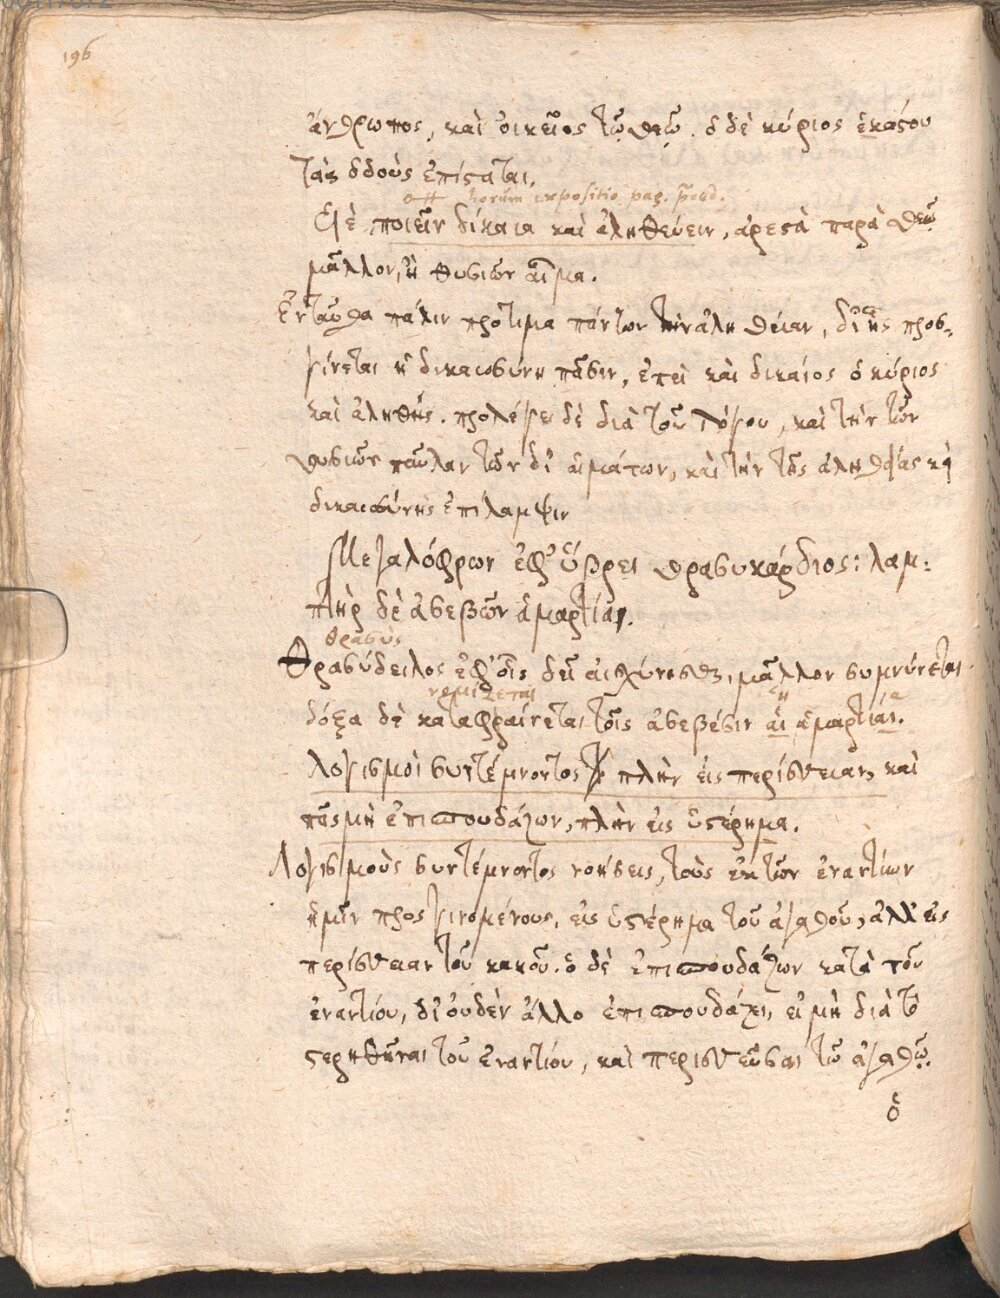 196
ἄνθρωπος, καὶ οἰκεῖος τῷ θεῷ. ὁ δὲ κύριος ἑκάστου
τὰς ὁδοὺς ἐπίσταται.
horum expositio pag.
ποιεῖν δίκαια καὶ ἀληθεύειν, ἀρεστὰ παρὰ θεῷ
μᾶλλον, ἢ θυσιῶν αἷμα.
Ἐνταῦθα πάλιν προτιμᾶ πάντων τὴν ἀλήθειαν, δι' ἧς προσ-
γίνεται ἡ δικαιοσύνη πᾶσιν, ἐπεὶ καὶ δικαίος ὁ κύριος
καὶ ἀληθής. προλέγει δὲ διὰ τοῦ λόγου, καὶ τὴν τῶν
θυσιῶν παῦλαν τῶν δι' αἱμάτων, καὶ τὴν τῆς ἀληθείας καὶ
δικαιοσύνης ἐπίλαμψιν
Μεγαλόφρων ἐφ' ὕβρει θρασυκάρδιος: λαμ-
πτὴρ δὲ ἀσεβῶν ἁμαρτία.
θρασὺς
Θρασύδειλος ἐφ' οἷς δεῖ αἰσχύνεσθαι, μᾶλλον σεμνύνεται.
νομίζεται
δόξα δὲ καταφαίνεται τοῖς ἀσεβέσιν αἱ ἁμαρτίαι.
Λογισμοὶ συντέμνοντος πλὴν εἰς περίσσειαν, καὶ
πᾶς μὴ ἐπισπουδάζων, πλὴν εἰς ὑστέρημα.
Λογισμοὺς συντέμνοντος νοήσεις, τοὺς ἐκ τῶν ἐναντίων
ἡμῖν προσγινομένους, εἰς ὑστέρημα τοῦ ἀγαθοῦ, ἀλλ' εἰς
περίσσειαν τοῦ κακοῦ. ὁ δὲ ἐπισπουδάζων κατὰ τοῦ
ἐναντίου, δι' οὐδὲν ἄλλο ἐπισπουδάζει, εἰ μὴ διὰ τὸ
στερηθῆναι τοῦ ἐναντίου, καὶ περισσεῦσαι τῷ ἀγαθῷ.
ὁ